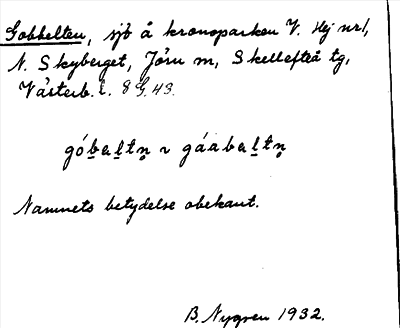 Gobbelten, sjö å kronoparken V. Hej nr 1,
N. Skyberget, Jörn sn, Skellefteå tg,
Västerb. l. 8 G. 43.
góbaltn ~ gáabaltn
Namnets betydelse obekant.
B. Nygren 1932.